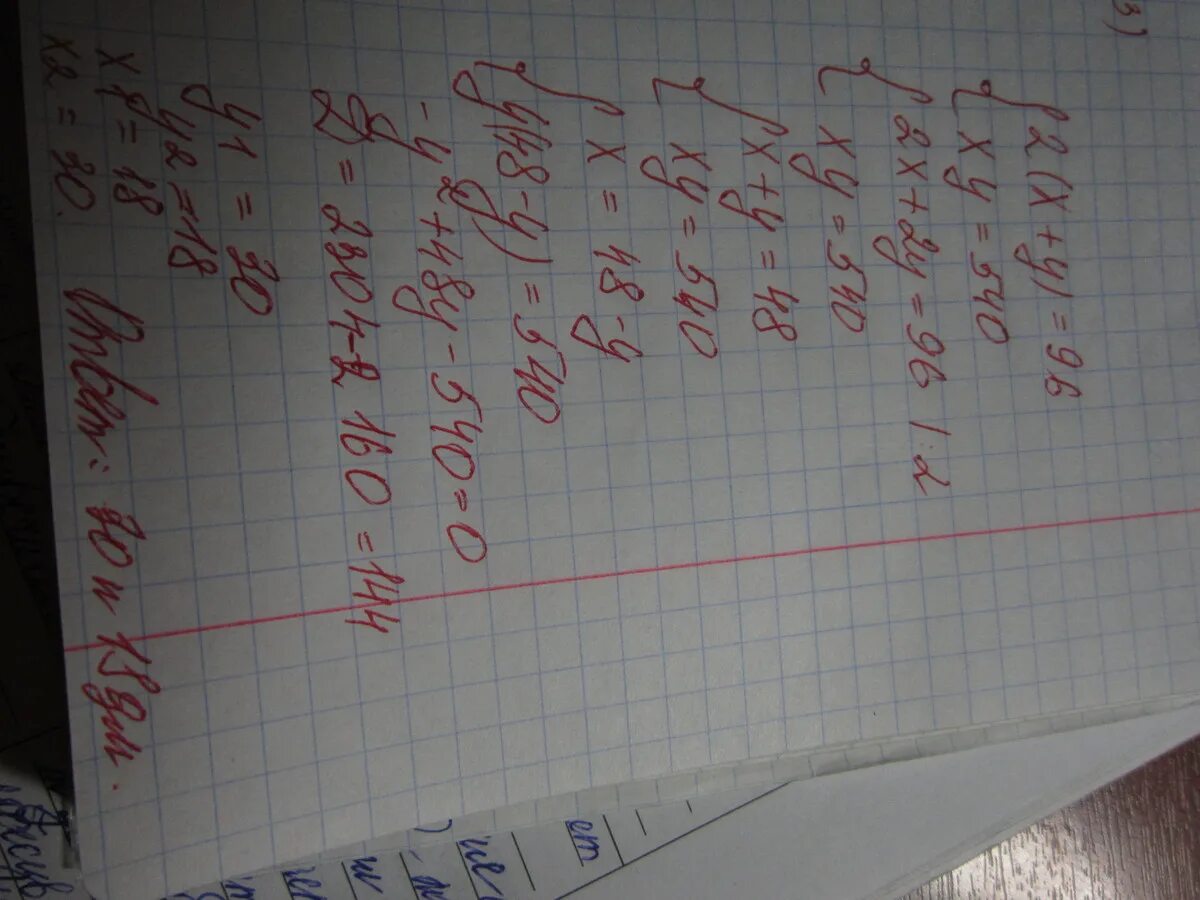 3)
{ 2(x+y)=96
xy=540
{ 2x+2y=96 |:2
xy=540
{ x+y=48
xy=540
{ x=48-y
y(48-y)=540
-y²+48y-540=0
D=2304-2160=144
y1=30
y2=18
x1=18
x2=30.
Ответ: 30 и 18 дм.
ет